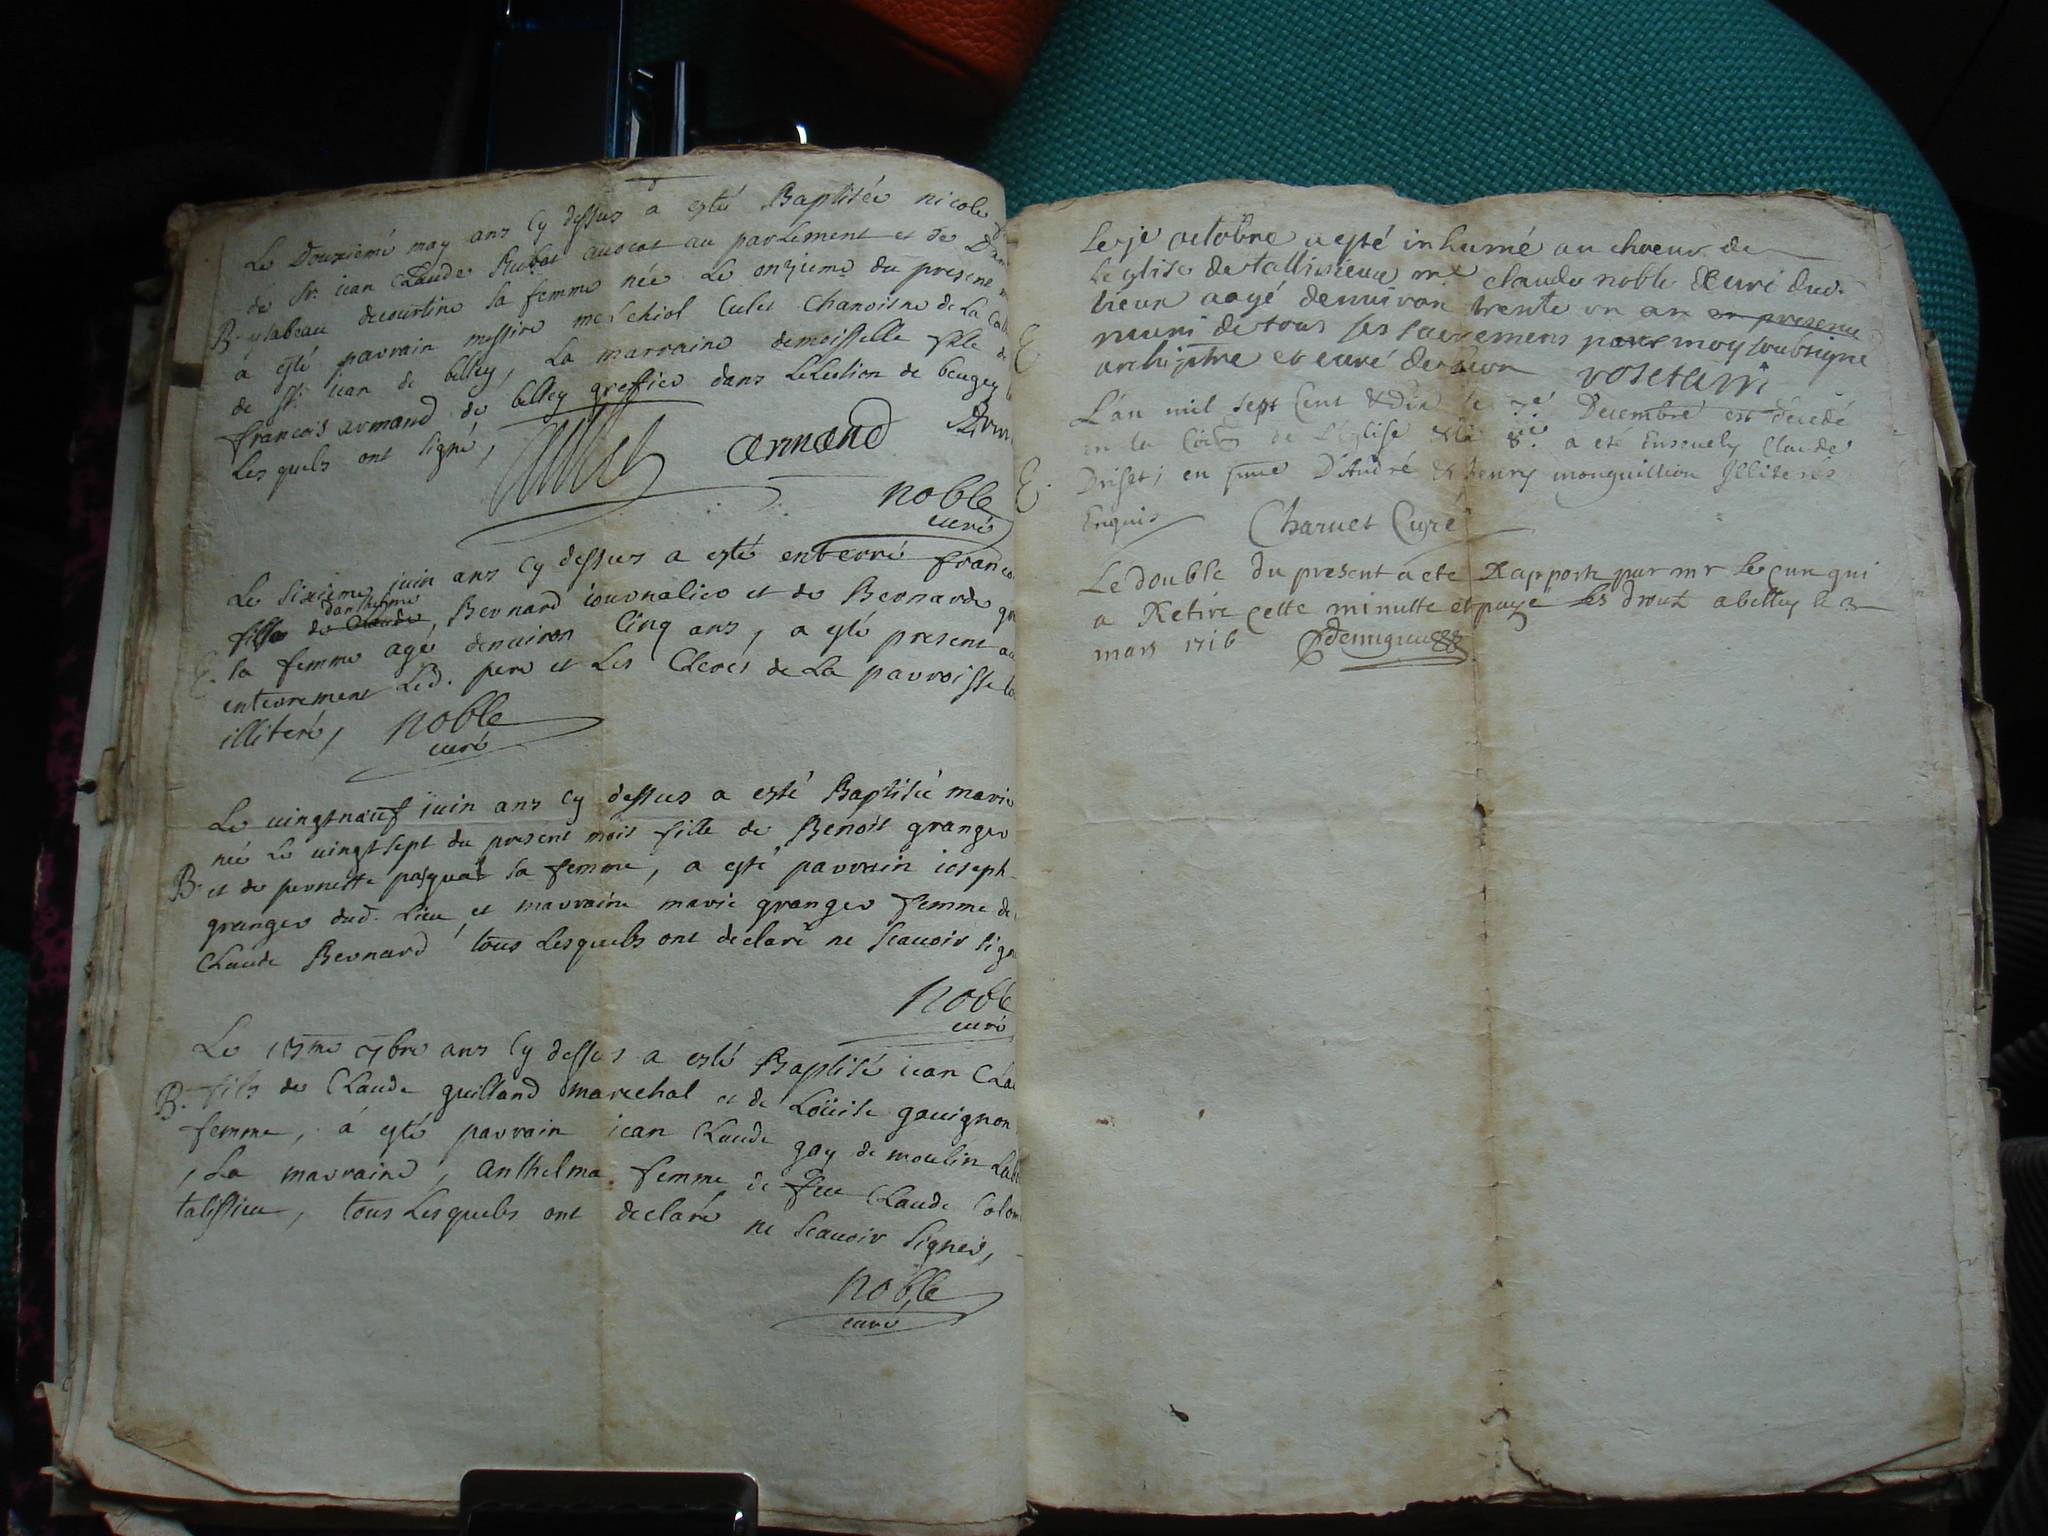 Le Douziemé may ans Cy dessus a esté Baptisée nicole
de Sr. iean Claude Rubat avocat au parlement et de
B. ysabeau decourtine sa femme née Le onzieme du presene
a esté parrain messire melchiol Culet Chanoisne de La
de St. iean de belley, La marraine demoisselle fille
francois armand de belley greffier dans Lelection de beugey
Lesquels ont signé,
Cullet armand
noble
curé
Le Sixieme juin ans Cy dessus a esté enterré
danthelme
fille de Claude, Bernard iournalier et de Bernarde
E. sa femme agé denuiron Cinq ans, a esté present
enterrement Led. pere et Les Clercs de La parroisse
illiteré, noble
curé
Le vingtneuf juin ans Cy dessus a esté Baptisée marie
née Le vingtsept du present mois fille de Benoit granger
B. et de pernette pasquat sa femme, a esté parrain ioseph
granger dud. Lieu, et marraine marie granger femme de
Claude Bernard, tous Lesquels ont declaré ne scauoir
noble
curé
Le 7bre ans Cy dessus a esté Baptisé iean
B. fils de Claude guilland marechal et de Loüise gauignon
femme, a esté parrain iean Claude gay de moulin
, La marraine, anthelma femme de feu Claude
talissieu, tous Lesquels ont declaré ne scauoir signer,
noble
curé
octobre a esté inhumé au choeur de
leglise de tallissieux mre claude noble Curé dud.
E. lieux aagé denuiron trente un an en presence
muni de tous ses sacremens par moy soubsigne
archiptre et curé
L'an mil sept Cent & dix le 7e Decembre est decedé
en la de L'Eglise & le 8e a eté Enseuely Claude
E. en pnce D'André & henry monguillion Illiterés
Enquis Charuet Curé
Le double du present a ete Rapporte par mr le cure qui
a Retire cette minutte et paye les droitz a belley le 3
mars 1716